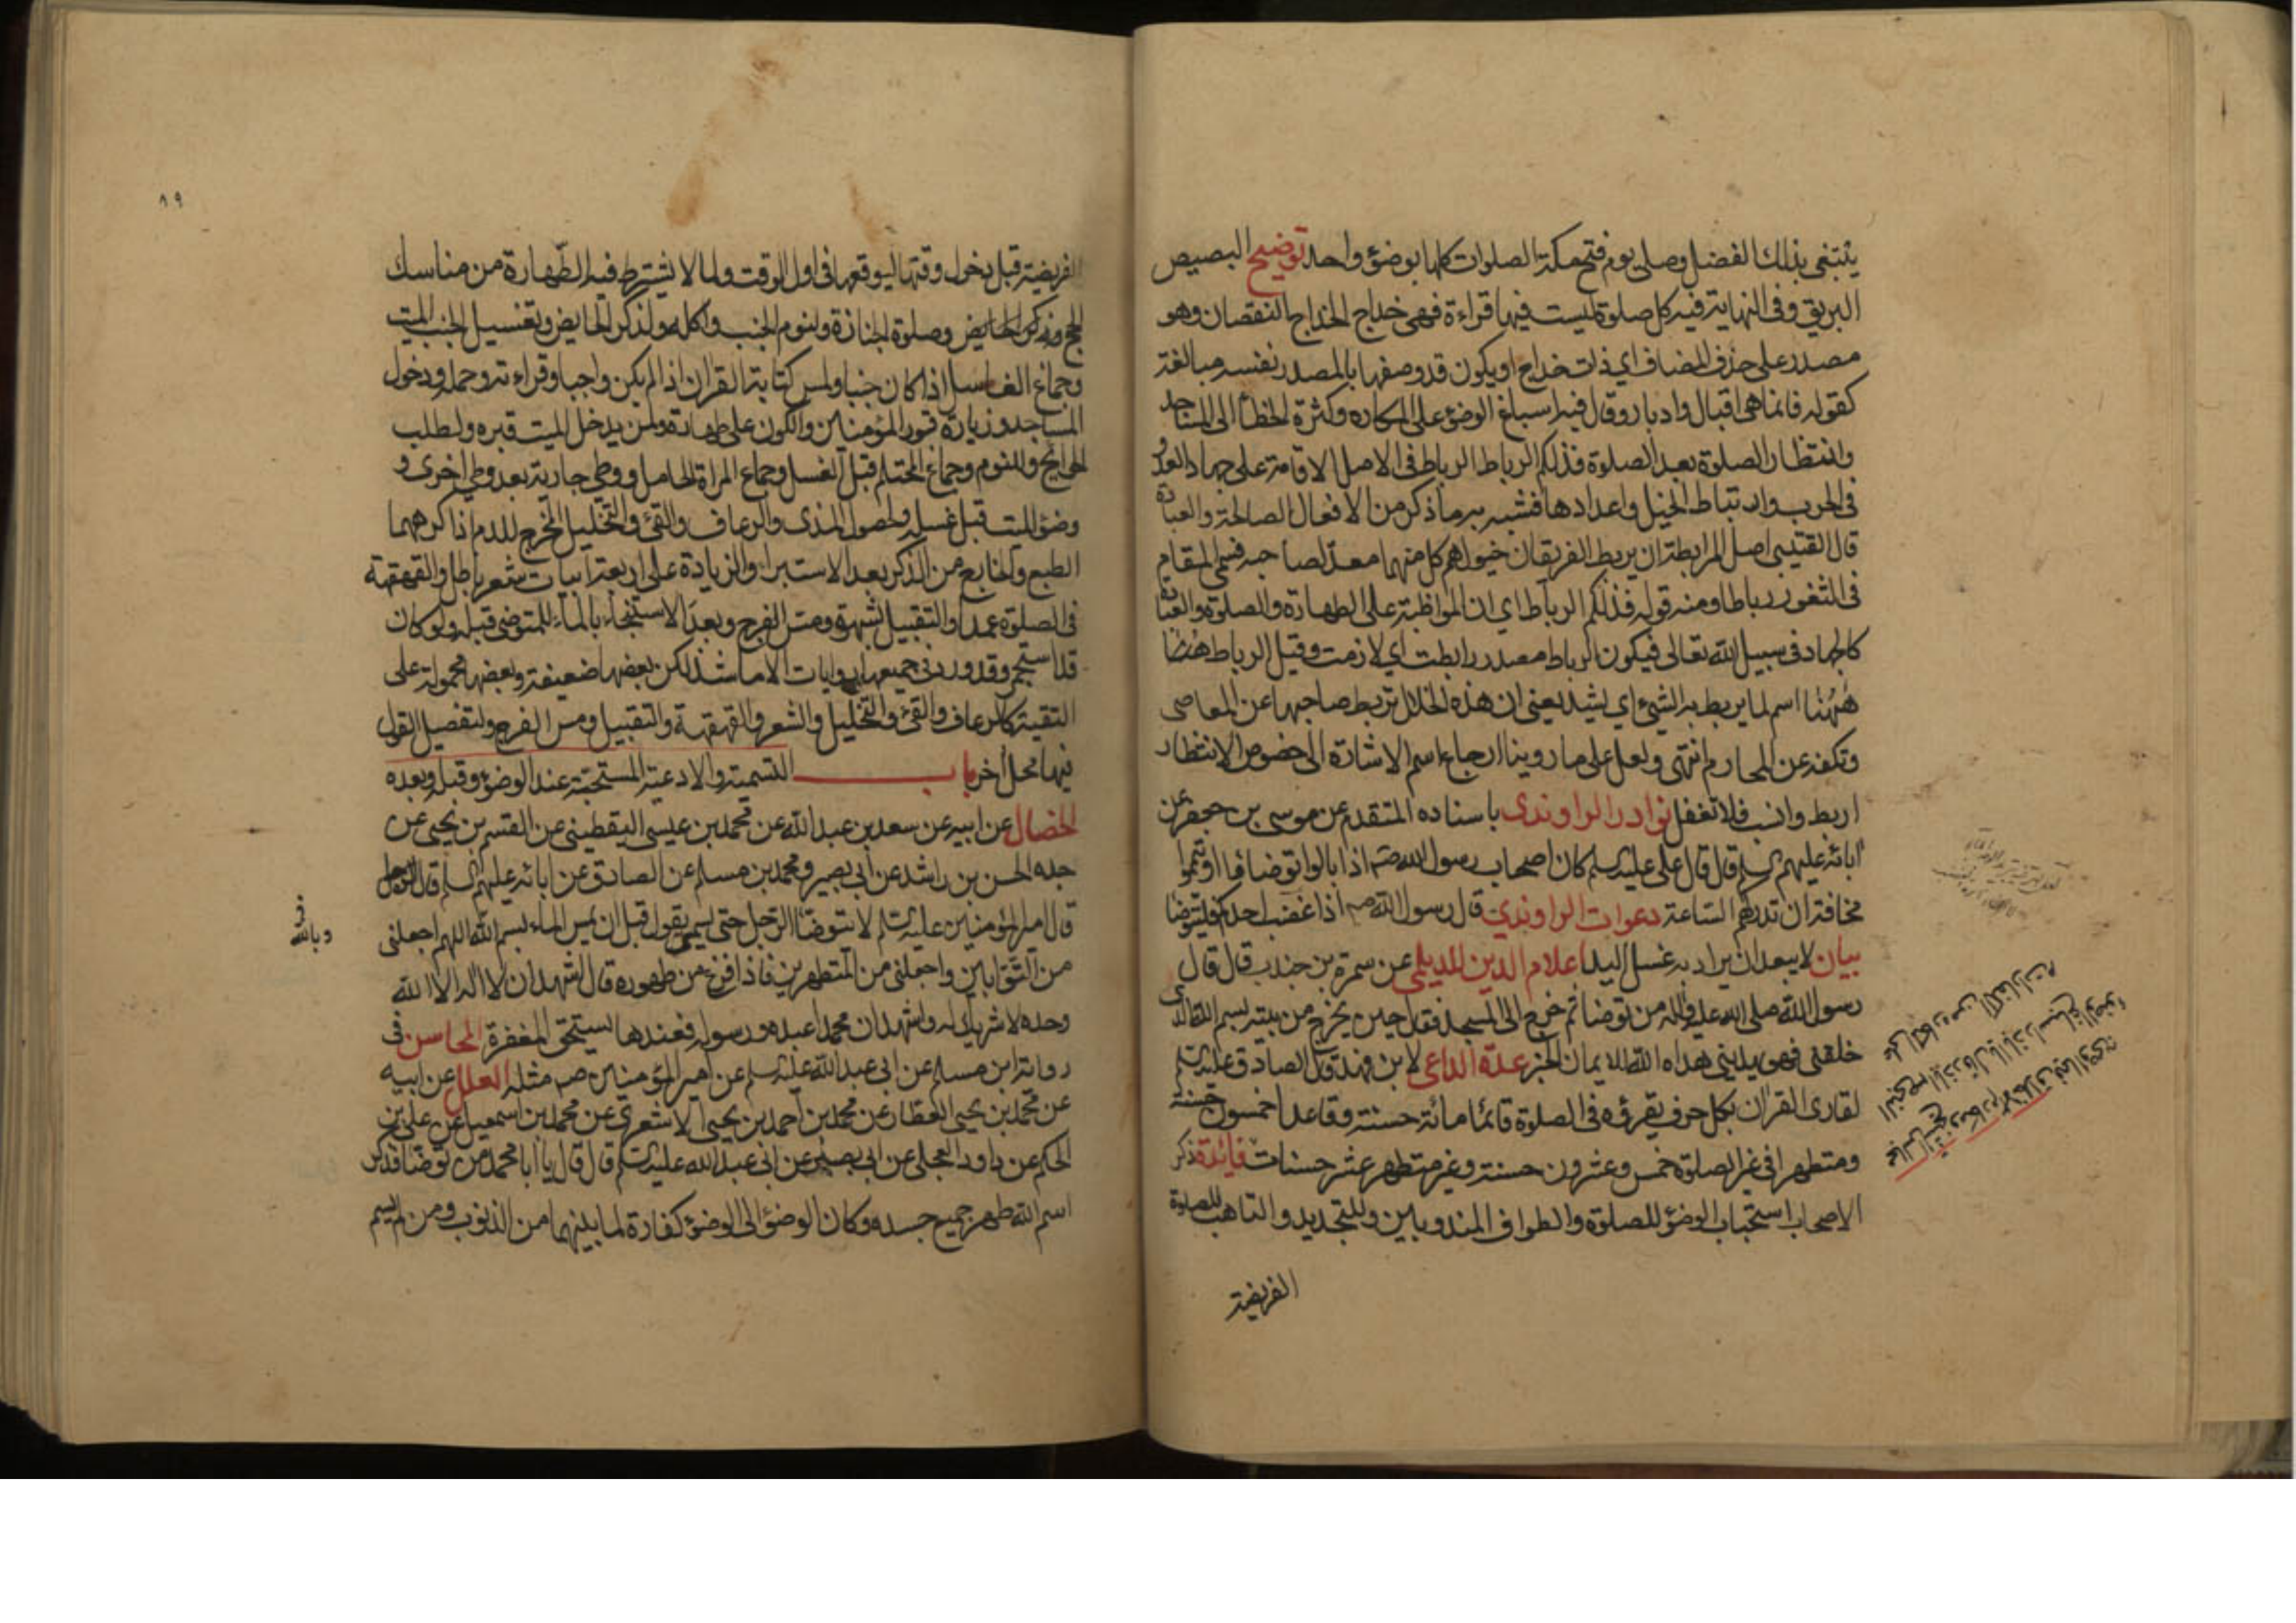 يبتغي بذلك الفضل وصلى يوم فتح مكة الصلوات كلها بوضوء واحد توضيح البصيص
البريق وفي النهاية فيه كل صلوة ليست فيها قراءة فهي خداج الخداج النقصان وهو
مصدر على حذف المضاف اي ذات خداج او يكون قد وصفها بالمصدر نفسه مبالغة
كقوله فانما هي اقبال وادبار وقال فيه اسباغ الوضوء على المكاره وكثرة الخطا الى المساجد
وانتظار الصلوة بعد الصلوة فذلكم الرباط الرباط في الاصل الاقامة على جهاد العدو
في الحرب وارتباط الخيل واعدادها فشبه به ما ذكر من الافعال الصالحة والعبادة
قال القتيبي اصل المرابطة ان يربط الفريقان خيولهم كل منهما معد لصاحبه فسمي المقام
في الثغور رباطا ومنه قوله فذلكم الرباط اي ان المواظبة على الطهارة والصلوة والعبادة
كالجهاد في سبيل الله تعالى فيكون الرباط مصدر رابطت اي لازمت وقيل الرباط ههنا
ههنا اسم لما يربط به الشيء اي يشد يعني ان هذه الخلال تربط صاحبها عن المعاصي
وتكفه عن المحارم انتهى ولعل على ما روينا ارجاع اسم الاشارة الى خصوص الانتظار
اربط وانسب فلا تغفل نوادر الراوندي باسناده المتقدم عن موسى بن جعفر عن
ابائه عليهم السلم قال قال علي عليه السلم كان اصحاب رسول الله ص اذا بالوا توضاؤا او تيمموا
مخافة ان تدركهم الساعة دعوات الراوندي قال رسول الله ص اذا غضب احدكم فليتوضا
بيان لا يبعد ان يراد به غسل اليد اعلام الدين للديلمي عن سمرة بن جندب قال قال
رسول الله صلى الله عليه واله من توضا ثم خرج الى المسجد فقال حين يخرج من بيته بسم الله الذي
خلقني فهو يهديني هداه الله للايمان الخبر عدة الداعي لابن فهد قال الصادق عليه السلم
لقارئ القران بكل حرف يقرؤه في الصلوة قائما مائة حسنة وقاعدا خمسون حسنة
ومتطهرا في غير الصلوة خمس وعشرون حسنة وغير متطهر عشر حسنات فائدة ذكر
الاصحاب استحباب الوضوء للصلوة والطواف المندوبين وللتجديد والتاهب للصلوة
الفريضة
مجالس الشيخ ومكارم الاخلاق
على المكاره من الكفارات
٨٩
الفريضة قبل دخول وقتها ليوقعها في اول الوقت ولما لا يشترط فيه الطهارة من مناسك
الحج وذكر الحايض وصلوة الجنازة ولنوم الجنب واكله ولذكر الحايض وتغسيل الجنب الميت
وجماع الغاسل اذا كان جنبا ولمس كتابة القران اذا لم يكن واجبا وقراءته وحمله ودخول
المساجد وزيارة قبور المؤمنين والكون على طهارة ولمن يدخل الميت قبره ولطلب
الحوايج وللنوم وجماع المحتلم قبل الغسل وجماع المراة الحامل ووطي جارية بعد وطي اخرى و
وضوء الميت قبل غسله ولحصول المذي والرعاف والقيء والتخليل المخرج للدم اذا كرههما
الطبع والخارج من الذكر بعد الاستبراء والزيادة على اربعة ابيات شعر باطل والقهقهة
في الصلوة عمدا والتقبيل بشهوة ومس الفرج وبعد الاستنجاء بالماء للمتوضي قبله ولو كان
قد استجمر وقد ورد في جميعها روايات الا ما شذ لكن بعضها ضعيفة وبعضها محمولة على
التقية كالرعاف والقيء والتخليل والشعر والقهقهة والتقبيل ومس الفرج ولتفصيل القول
فيها محل اخر باب التسمية والادعية المستحبة عند الوضوء وقبله وبعده
الخصال عن ابيه عن سعد بن عبد الله عن محمد بن عيسى اليقطيني عن القسم بن يحيى عن
جده الحسن بن راشد عن ابي بصير ومحمد بن مسلم عن الصادق عن ابائه عليهم السلم قال
قال امير المؤمنين عليه السلم لا يتوضا الرجل حتى يسمي يقول قبل ان يمس الماء بسم الله اللهم اجعلني
وبالله
من التوابين واجعلني من المتطهرين فاذا فرغ من طهوره قال اشهد ان لا اله الا الله
وحده لا شريك له واشهد ان محمدا عبده ورسوله فعندها يستحق المغفرة المحاسن في
رواية ابن مسلم عن ابي عبد الله عليه السلم عن امير المؤمنين ص مثله العلل عن ابيه
عن محمد بن يحيى العطار عن محمد بن احمد بن يحيى الاشعري عن محمد بن اسمعيل عن علي بن
الحكم عن داود العجلي عن ابي بصير عن ابي عبد الله عليه السلم قال قال يا ابا محمد من توضا فذكر
اسم الله طهر جميع جسده وكان الوضوء الى الوضوء كفارة لما بينهما من الذنوب ومن لم يسم